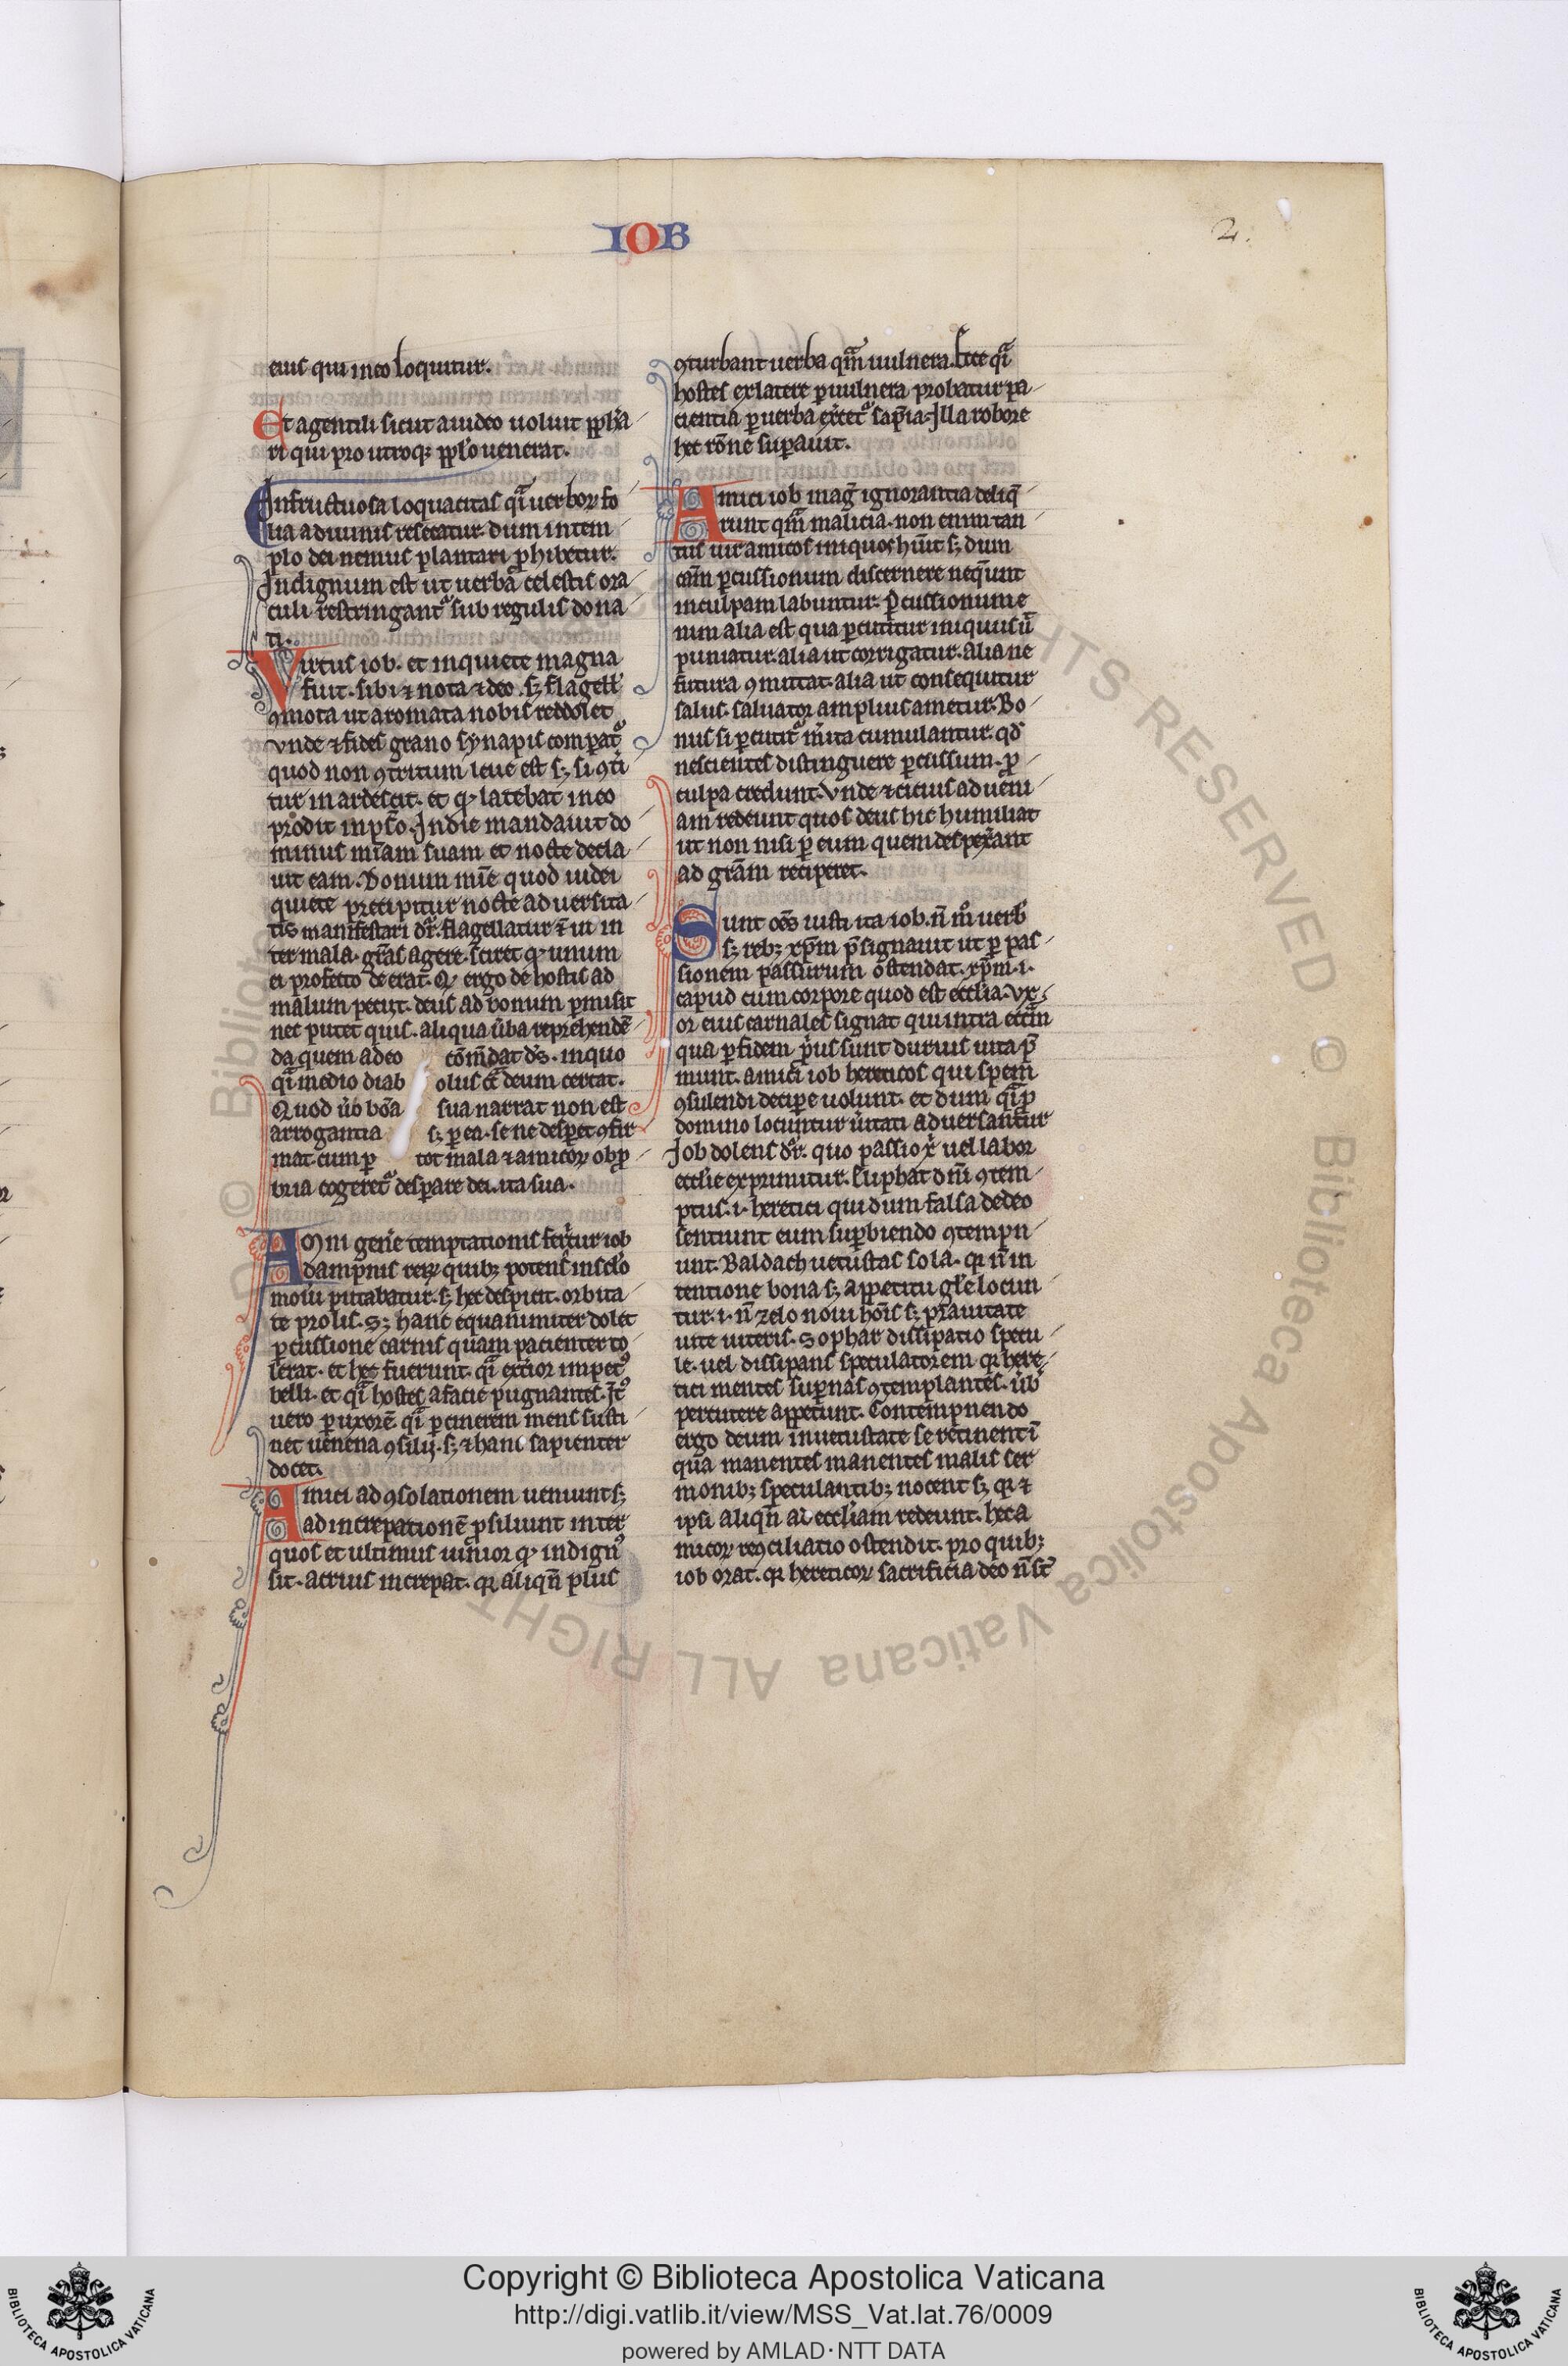 IOB
2.
eius qui in eo loquitur.
Et a gentili sicut a iudeo uoluit ꝓph̄a
ri qui pro utroqꝫ ꝓp̄lo uenerat.
Infructuosa loquacitas q̄i uerboꝝ fo
lia a diuinis resecatur dum in tem
plo dei nemus plantari ꝓhibetur.
Indignum est ut uerba celestis ora
culi restringantᷣ sub regulis dona
ti.
Virtus iob. et in quiete magna
fuit. sibi ⁊ nota ⁊ deo. sꝫ flagell'
ꝯmota ut aromata nobis reddolet
vnde ⁊ fides grano synapis comparatᷣ
quod non ꝯtritum leue est sꝫ si ꝯti
tur inardescit. et ꝙ latebat in eo
prodit inpc̄o. In die mandauit do
minus mīam suam et nocte decla
uit eam. Donum mīe quod in dei
quiete precipitur nocte aduersita
tis manifestari dr̄. flagellatur
ter mala. gr̄as agere sciret ꝙ unum
ei profecto deerat. ergo de hostis ad
malum peciit. deus ad bonum ꝑmisit
nec putet quis. aliqua ūba reprehendē
da quem adeo com̄dat d̄s. in quo
q̄i medio diab olus deum certat.
Quod ūo bōa sua narrat non est
arrogantia sꝫ ꝑ ea. se ne desperet ꝯfir
mat cum ꝑ tot mala ⁊ amicoꝝ obꝓ
bria cogeretᷣ desperare de uita sua.
A omni geñe temptationis feritur iob
dampnis reꝝ quibꝫ potens in sclo
putabatur. sꝫ hec despicit. orbita
te prolis. Sꝫ hanc equanimiter dolet
ꝑcussione carnis quam pacienter to
lerat. et hec fuerunt q̄i exterior impetꝰ
belli. et q̄i hostes a facie pugnantes. Itꝰ
uero ꝑ uxorē. q̄i ꝑ cinerem mens susti
net uenena ꝯsilij. sꝫ ⁊ hanc sapienter
docet.
Amici ad ꝯsolationem ueniunt sꝫ
ad increpationē ꝓsiliunt inter
quos et ultimus iunior ꝙ indignꝰ
sit. acrius increpat. qꝛ aliqn̄ plus
ꝯturbant uerba qm̄ uulnera. Ecce q̄i
hostes ex latere ꝑ uulnera probatur pa
cientia ꝑ uerba exercetᷣ sap̄ia. Illa robore
hec rōne suꝑauit.
Amici iob mag̃ ignorantia deliq̄
runt qm̄ malicia. non enim tan
tus uir amicos iniquos hūit sꝫ dum
cām ꝑcussionum discernere neq̄unt
in culpam labuntur. Percussionum e
nim alia est qua ꝑcutitur iniquus ū
puniatur. alia ut corrigatur. alia ne
futura ꝯmittat. alia ut consequitur
salus. saluator amplius ametur. Bo
nus si ꝑcutitᷣ mīta cumulantur. qd̄
nescientes distinguere ꝑcussum. ꝓ
culpa credunt. Vnde ⁊ cicius ad ueni
am redeunt quos deus hic humiliat
ut non nisi ꝑ eum quem despexerant
ad gr̄am reciperet.
Sunt om̄s iusti ita iob. n̄ m̊ uerb'
sꝫ rebꝫ xp̄m p̄signauit ut ꝑ pas
sionem passurum ostendat. xp̄m. i.
capud cum corpore quod est eccl̄ia. vx
or eius carnales signat qui intra ecc̄m
qua ꝑ fidem ꝓus sunt duruis uita p̄
munt. amici iob hereticos qui spem
ꝯsulendi decipere uolunt. et dum q̄i ꝓ
domino locuntur ūitati aduersantur
Job dolens dr̄. quo passio xp̄i uel labor
eccl̄ie exprimitur. Eliphat dn̄i ꝯtem
ptus. i. heretici qui dum falsa de deo
sentiunt eum suꝑbiendo ꝯtempn
unt. Baldach uetustas sola. qꝛ n̄ in
tentione bona sꝫ appetitu gl̄ie locun
tur. i. n̄ zelo noui hoīs sꝫ prauitate
uite ueteris. Sophar dissipatio specu
le. uel dissipans speculatorem qꝛ here
tici mentes supernas ꝯtemplantes. ūb'
percutere appetunt. Contempnendo
ergo deum in uetustate se retinent ī
qua manentes manentes malis ser
monibꝫ speculantibꝫ nocent sꝫ qꝛ ⁊
ipsi aliqn̄ ad eccl̄iam redeunt. hec a
micoꝝ reꝯciliatio ostendit. pro quibꝫ
iob orat. qꝛ hereticoꝝ sacrificia deo n̄ st̄
© Biblioteca Apostolica Vaticana ALL RIGHTS RESERVED
Copyright © Biblioteca Apostolica Vaticana
http://digi.vatlib.it/view/MSS_Vat.lat.76/0009
powered by AMLAD·NTT DATA
BIBLIOTECA APOSTOLICA VATICANA
BIBLIOTECA APOSTOLICA VATICANA